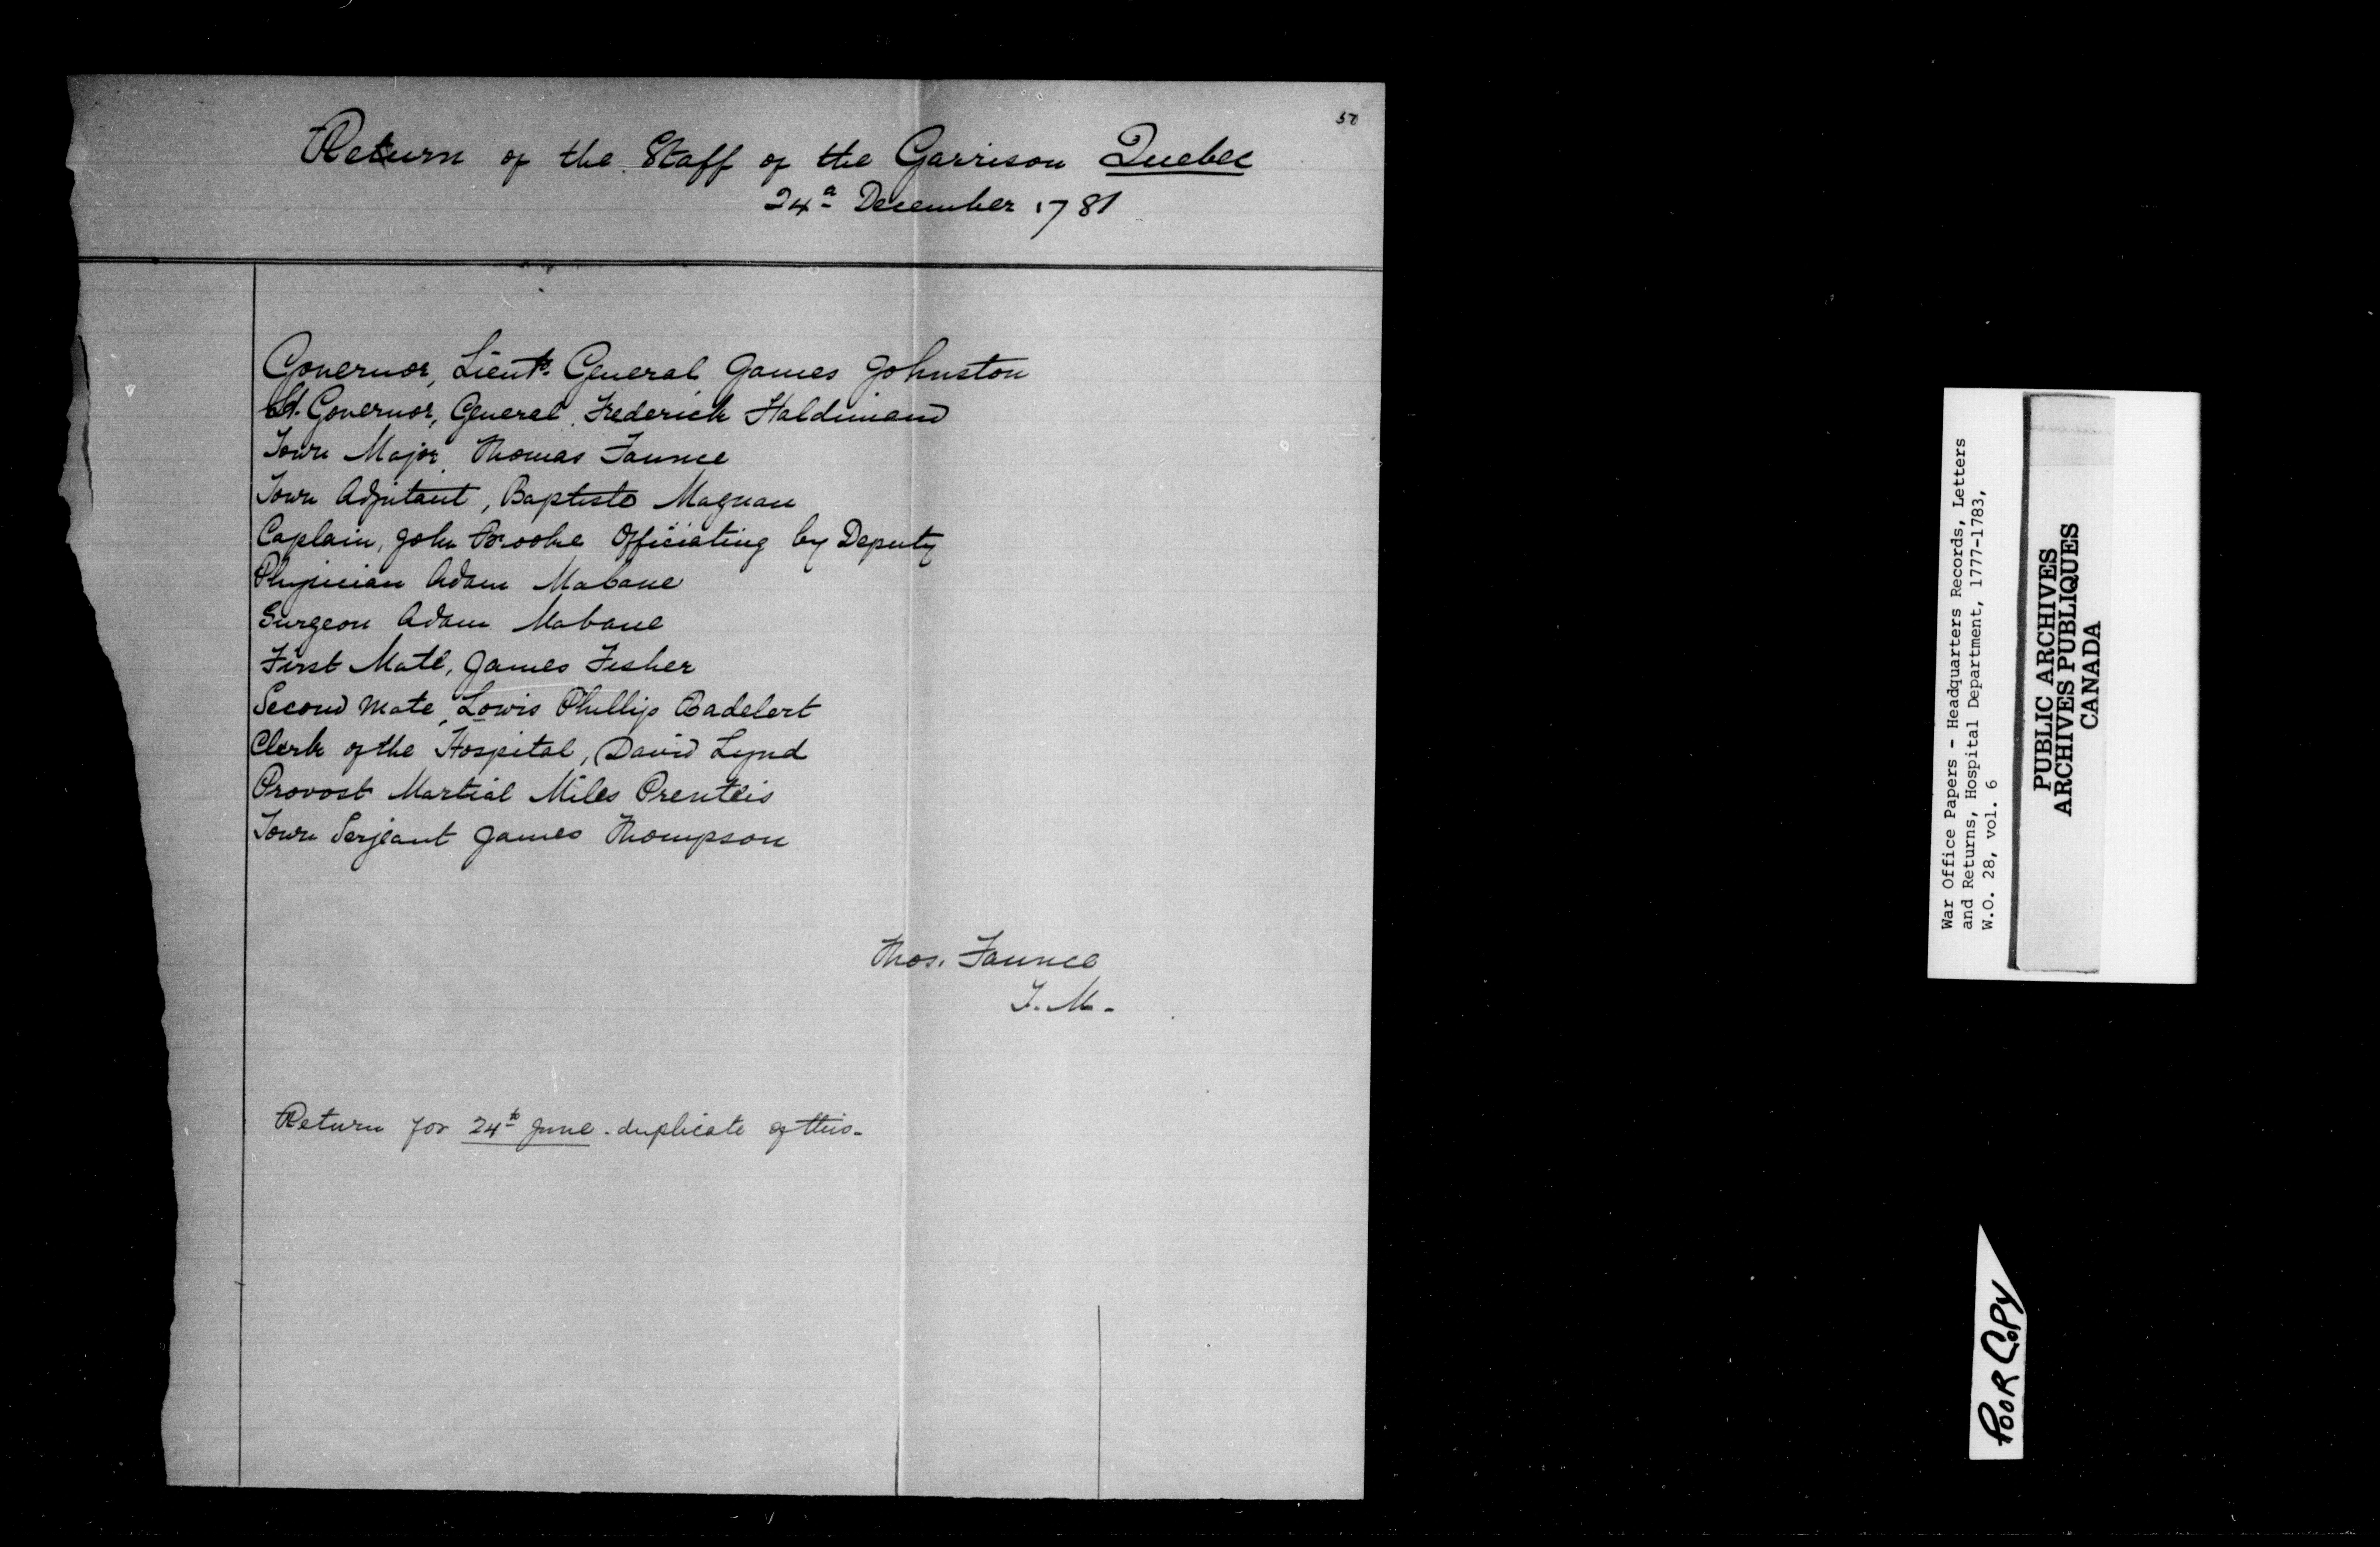 50
Return of the Staff of the Garrison Quebec
24a December 1781
Governor, Lieut. General James Johnston
Lt. Governor, General Frederick Haldimand
Town Major Thomas Faunce
Town Adjutant, Baptiste Magnan
Caplain, John Brooke Officiating by Deputy
Physician Adam Mabane
Surgeon Adam Mabane
First Mate, James Fisher
Second Mate, Lowis Phillip Badelert
Clerk of the Hospital, David Lynd
Provost Martial Miles Prenteis
Town Serjeant James Thompson
Thos. Faunce
T. M.
Return for 24th June - duplicate of this -
War Office Papers - Headquarters Records, Letters
and Returns, Hospital Department, 1777-1783,
W.O. 28, vol. 6
PUBLIC ARCHIVES
ARCHIVES PUBLIQUES
CANADA
POOR COPY